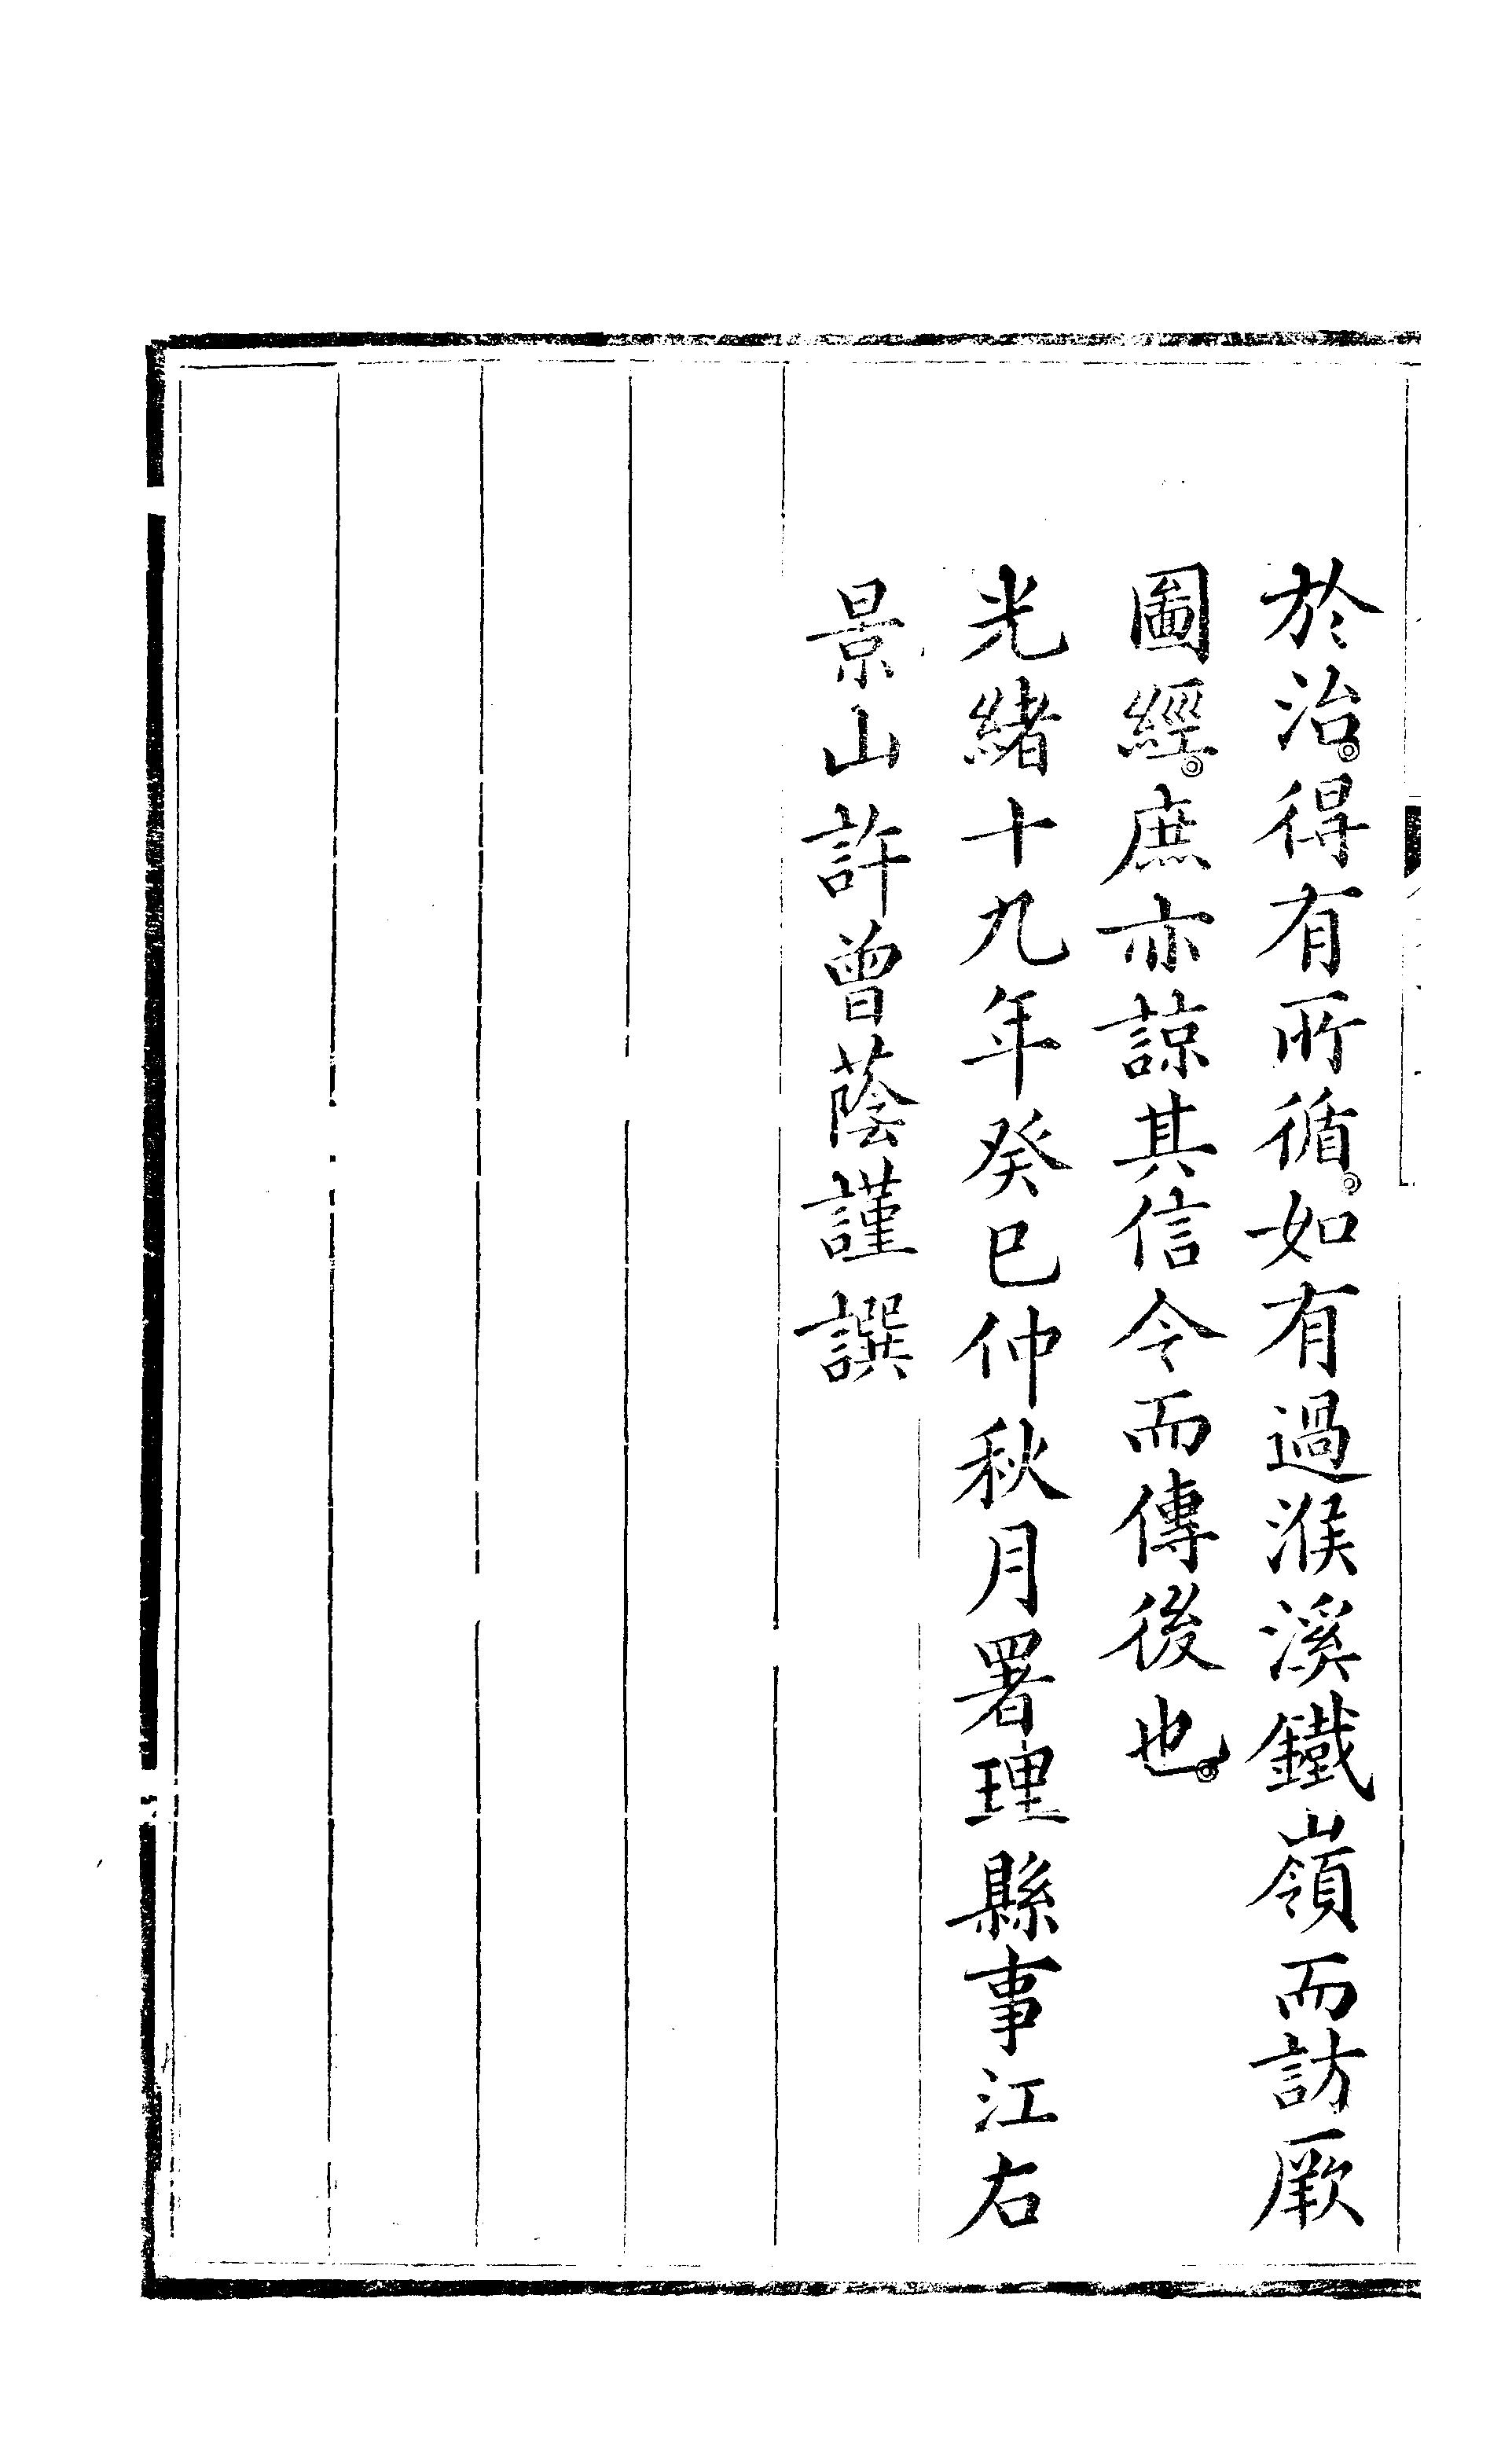 於治◎得有所循◎如有過溪鐵嶺而訪厥
圖經◎庶亦諒其信今而傳後也◎
光緒十九年癸巳仲秋月署理縣事江右
景山許曾蔭謹譔